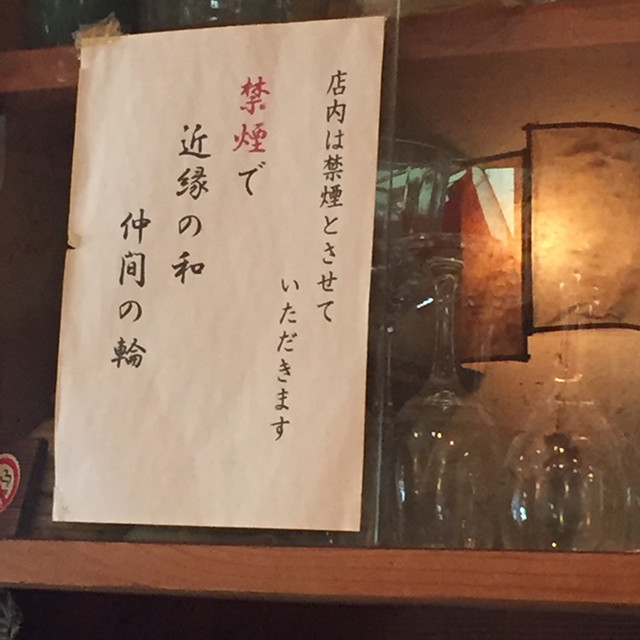 店内は禁煙とさせて
いただきます
禁煙で
近縁の和
仲間の輪